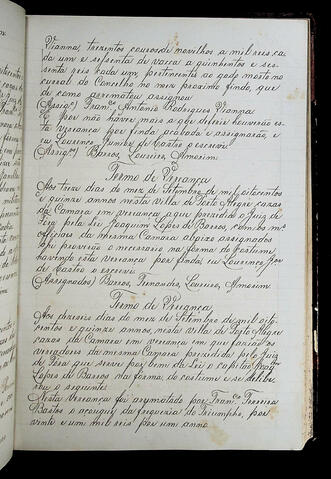 Vianna, trezentos couros de novilhos a mil reis ca
da um e sessenta de vacca a quinhentos e ses-
senta reis cada um, pertencentes ao gado morto no
curral do Concelho no mez proximo findo, que
de como arrematou assignou
(Assig.) Fran.co Antonio Rodrigues Vianna
E por não haver mais a que deferir houverão es
ta vereança por finda acabada e assignarão, e
eu Lourenço Junior de Castro o escrevi
(Assig.os) Barros, Loureiro, Amorim.
Termo de Vereança
Aos treze dias do mez de Setembro de mil oitocentos
e quinze annos nesta villa de Porto Alegre cazas
da Camara em vereança a que prezidio o Juiz de
Fora pela Lei Joaquim Lopes de Barros, com os m.s
officiaes da mesma Camara abaixo assignados
ahi proverão o necessario na forma do costume,
havendo esta vereança por finda, eu Lourenço Jr.
de Castro o escrevi
(Assignados) Barros, Fernandes, Loureiro, Amorim
Termo de Vereança
Aos dias do mez de Setembro de mil oito
centos e quinze annos, nesta villa de Porto Alegre
cazas da Camara em vereança em que farião os
vereadores da mesma Camara prezidida pelo Juiz
de Fora que serve por bem da Lei o capitão Joaq.m
Lopes de Barros na forma do costume e se delibe
rou o seguinte
Nesta vereança foi arrematado por Fran.co Ferreira
Bastos o açougue da freguezia do Triumpho, por
vinte e um mil reis por um anno